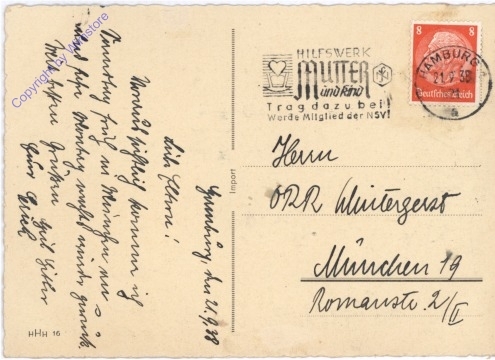 Copyright by Winstore
HILFSWERK
MUTTER
und Kind
Trag dazu bei!
Werde Mitglied der NSV!
HAMBURG
21.9.38
8 8
Deutsches Reich
Hamburg, den 21.9.38
Liebe Eltern!
Voraussichtlich komme ich
Sonntag früh in München an
und fahre Montag Nacht wieder zurück.
Mit besten Grüßen Heil Hitler
Euer
Herrn
ORR Wintergerst
München 19
Romanstr. 2/II
Import
HHH 16